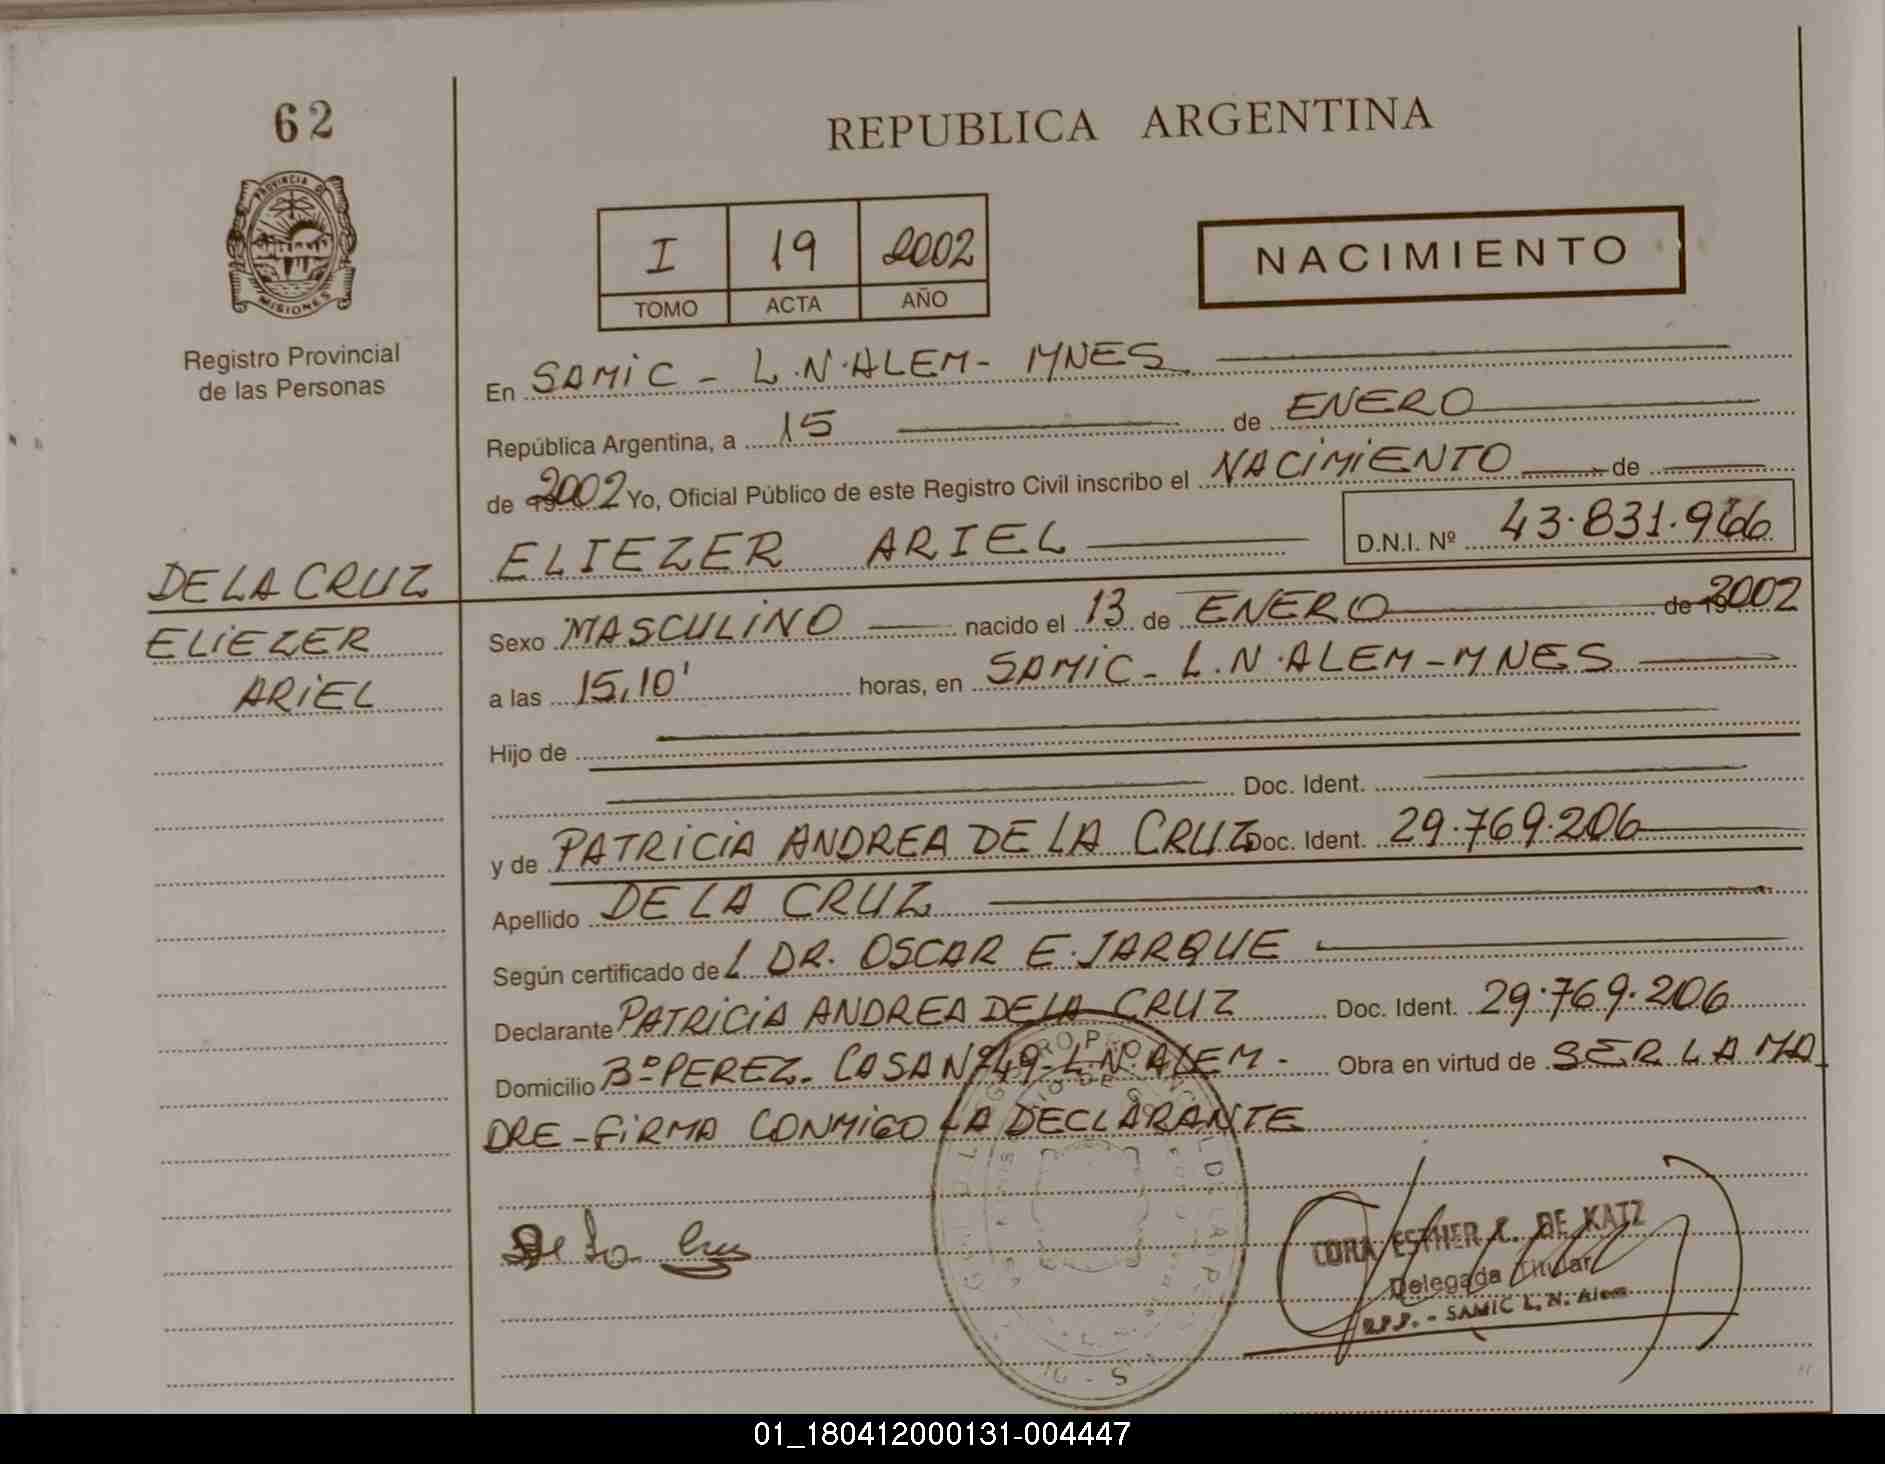 62
REPUBLICA ARGENTINA
PROVINCIA D
MISIONES
Registro Provincial
de las Personas
I 19 2002
TOMO ACTA AÑO
NACIMIENTO
En SAMIC - L.N.ALEM - MNES
República Argentina, a 15 de ENERO
de 2002 Yo, Oficial Público de este Registro Civil inscribo el NACIMIENTO de
ELIEZER ARIEL D.N.I. Nº 43.831.966
DE LA CRUZ
ELIEZER
ARIEL
Sexo MASCULINO nacido el 13 de ENERO de 2002
a las 15,10' horas, en SAMIC - L.N.ALEM - MNES
Hijo de
Doc. Ident.
y de PATRICIA ANDREA DE LA CRUZ Doc. Ident. 29.769.206
Apellido DE LA CRUZ
Según certificado de L DR. OSCAR E. JARQUE
Declarante PATRICIA ANDREA DE LA CRUZ Doc. Ident. 29.769.206
Domicilio Bº PEREZ. CASA Nº 49 - L.N. ALEM - Obra en virtud de SER LA MA
DRE - FIRMA CONMIGO LA DECLARANTE
De La Cruz
CORA ESTHER DE KATZ
Delegada Titular
R.P.P. - SAMIC L. N. Alem
01_180412000131-004447